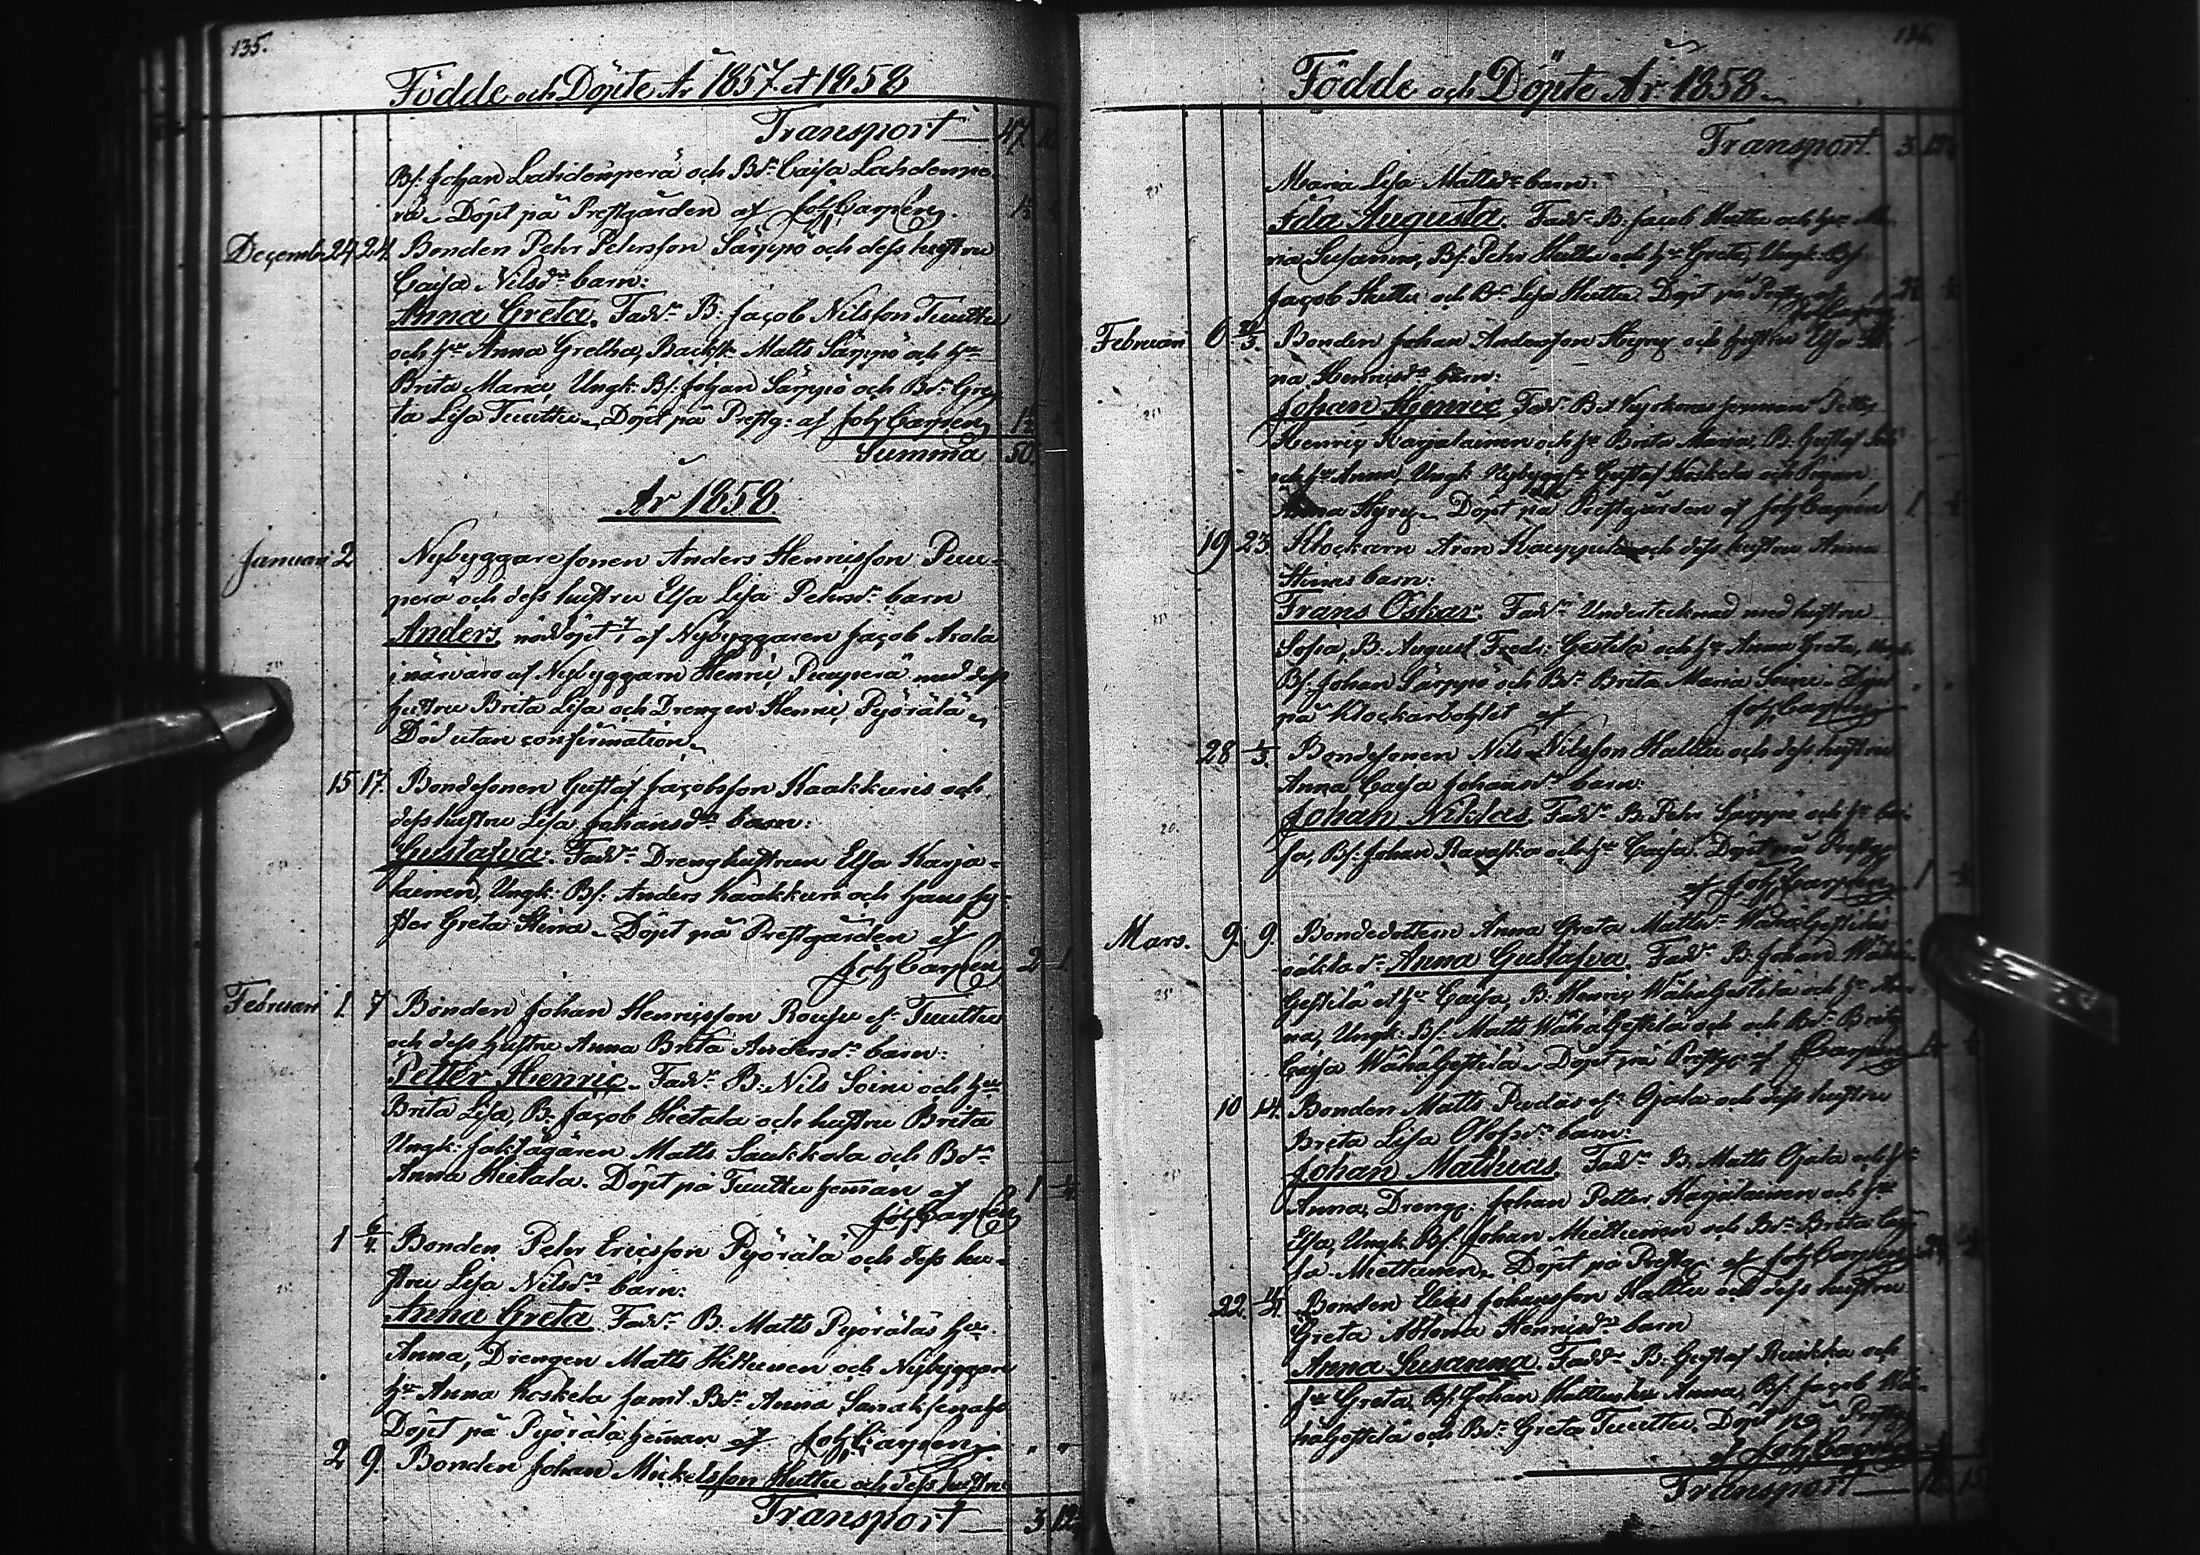 135.
Födde och Döpte År 1857 et 1858
Transport 47
Bs. Johan Lahdenperä och Bdr. Caisa Lahdenpe-
rä. Döpt på Prestgården af Joh Carpén. 1½
Decemb. 24 24. Bonden Pehr Pehrsson Särppö och dess hustru
Caisa Nilsdr. barn:
Anna Greta. Faddr. B. Jacob Nilsson Tuuttu
och hu Anna Gretha, Backst. Matts Särppö och hu
Brita Maria, Ungk. Bs. Johan Särppö och Bdr. Gre-
ta Lisa Tuuttu. Döpt på Prestg: af Joh Carpén 1½
Summa 50
År 1858
Januari 2 Nybyggaresonen Anders Henricsson Puu-
perä och dess hustru Elsa Lisa Pehrsdr. barn
Anders, nöddöpt af Nybyggaren Jacob Arola
i närvaro af Nybyggarn Henric Puuperä med dess
hustru Brita Lisa och Drengen Henric Pyörälä.
Död utan confirmation.
15 17. Bondesonen Gustaf Jacobsson Kaakkuri och
dess hustru Lisa Johansdr. barn:
Gustafva. Faddr. Dreng hustrun Elsa Karja-
lainen, Ungk: Bs: Anders Kaakkuri och hans sy-
ster Greta Stina. Döpt på Prestgården af
Joh Carpén 2 1
Februari 1. 7 Bonden Johan Henricsson Rousu ef. Tuuttu
och dess hustru Anna Brita Andersdr. barn:
Petter Henric. Faddr. B. Nils Soini och hu
Brita Lisa, B: Jacob Hietala och hustru Brita
Ungk: Jaktägaren Matts Saukkola och Bdr.
Anna Hietala. Döpt på Tuuttu heman af
Joh Carpén 1 ¼
1 6/4 Bonden Pehr Ericsson Pyörälä och dess hu-
stru Lisa Nilsdr. barn:
Anna Greta. Faddr. B. Matts Pyöräläs hu.
Anna, Drengen Matts Hiltunen och Nybyggare
hu Anna Koskela samt Bdr. Anna Sanaksenaho
Döpt på Pyörälä heman af Joh Carpén " "
2 9. Bonden Johan Mickelsson Huttu och dess hustru
Transport 3 12
Födde och Döpte År 1858
Transport 3
Maria Lisa Mattsdr. barn:
Ida Augusta. Faddr. B. Jacob Huttu och hu Ma-
ria Susanna, Bs. Pehr Huttu och hu Greta, Ungk. Bs
Jacob Huttu och Bdr. Lisa Huttu. Döpt på Prestg. af
Joh Carpén
Februari 6 Bonden Johan Andersson Hyry och hustru Elsa
na Henricsdr. barn:
Johan Henric. Faddr.
Henric Karjalainen och hu Brita Maria, B. Gustaf
och hu Anna, Ungk Nybygg Gustaf Koskela och Pigan
Anna Hyry. Döpt på Prestgården af Joh Carpén 1
19 23. Klockarn Aron och dess hustru Anna
Stinas barn:
Frans Oskar. Faddr. Undertecknad med hustru
Sofia, B. August Fredr. Gestilä och hu Anna Greta, Ungk.
Bs. Johan Särppö och Bdr. Brita Maria Soini. Döpt
på Klockarbohlet af Joh Carpén " "
28 Bondesonen Nils Nilsson Halttu och dess hustru
Anna Caisa Johansdr. barn:
Johan Niklas. Faddr. B. Pehr Särppö och hu Cai-
sa, Bs. Johan och hu Caisa. Döpt på Prestg
af Joh Carpén 1
Mars. 9. 9. Bondedottern Anna Greta Mattsdr. WähäGestiläs
oäkta dr. Anna Gustafva. Faddr. B. Johan Wähä-
Gestilä et hu Caisa, B: Henric WähäGestilä och hu An-
na, Ungk: Bs. Matts WähäGestilä och och Bdr. Brita
Caisa WähäGestilä. Döpt på Prestg. af Carpén
10 14. Bonden Matts Pudas ef. Ojala och dess hustru
Brita Lisa Olofsdr. barn:
Johan Mathias. Faddr. B. Matts Ojala och hu
Anna, Dreng: Johan Petter Karjalainen och hu
Elsa, Ungk. Bs. Johan Miettunen och Bdr. Brita Cai-
sa Miettunen. Döpt på Prestg: af Joh Carpén
22. Bonden Elias Johansson Halttu och dess hustru
Greta Henricsdr. barn
Anna Susanna. Faddr. B. Gustaf Ruikka och
hu Greta, Bs. Johan Anna, Bs. Jacob Wä-
hägestilä och Bdr. Greta Tuuttu. Döpt på Prestg
af Joh Carpén
Transport